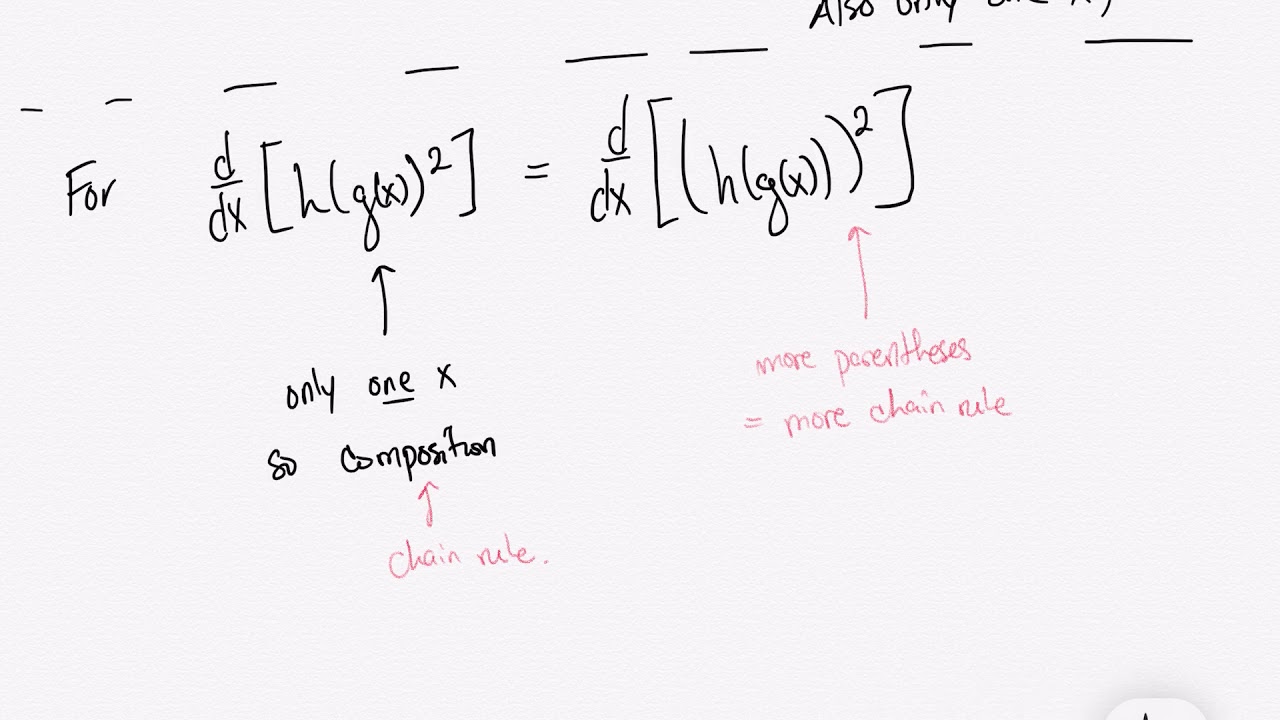 Also only one x,
For d/dx [h(g(x))²] = d/dx [(h(g(x)))²]
only one x
so composition
chain rule.
more parentheses
= more chain rule